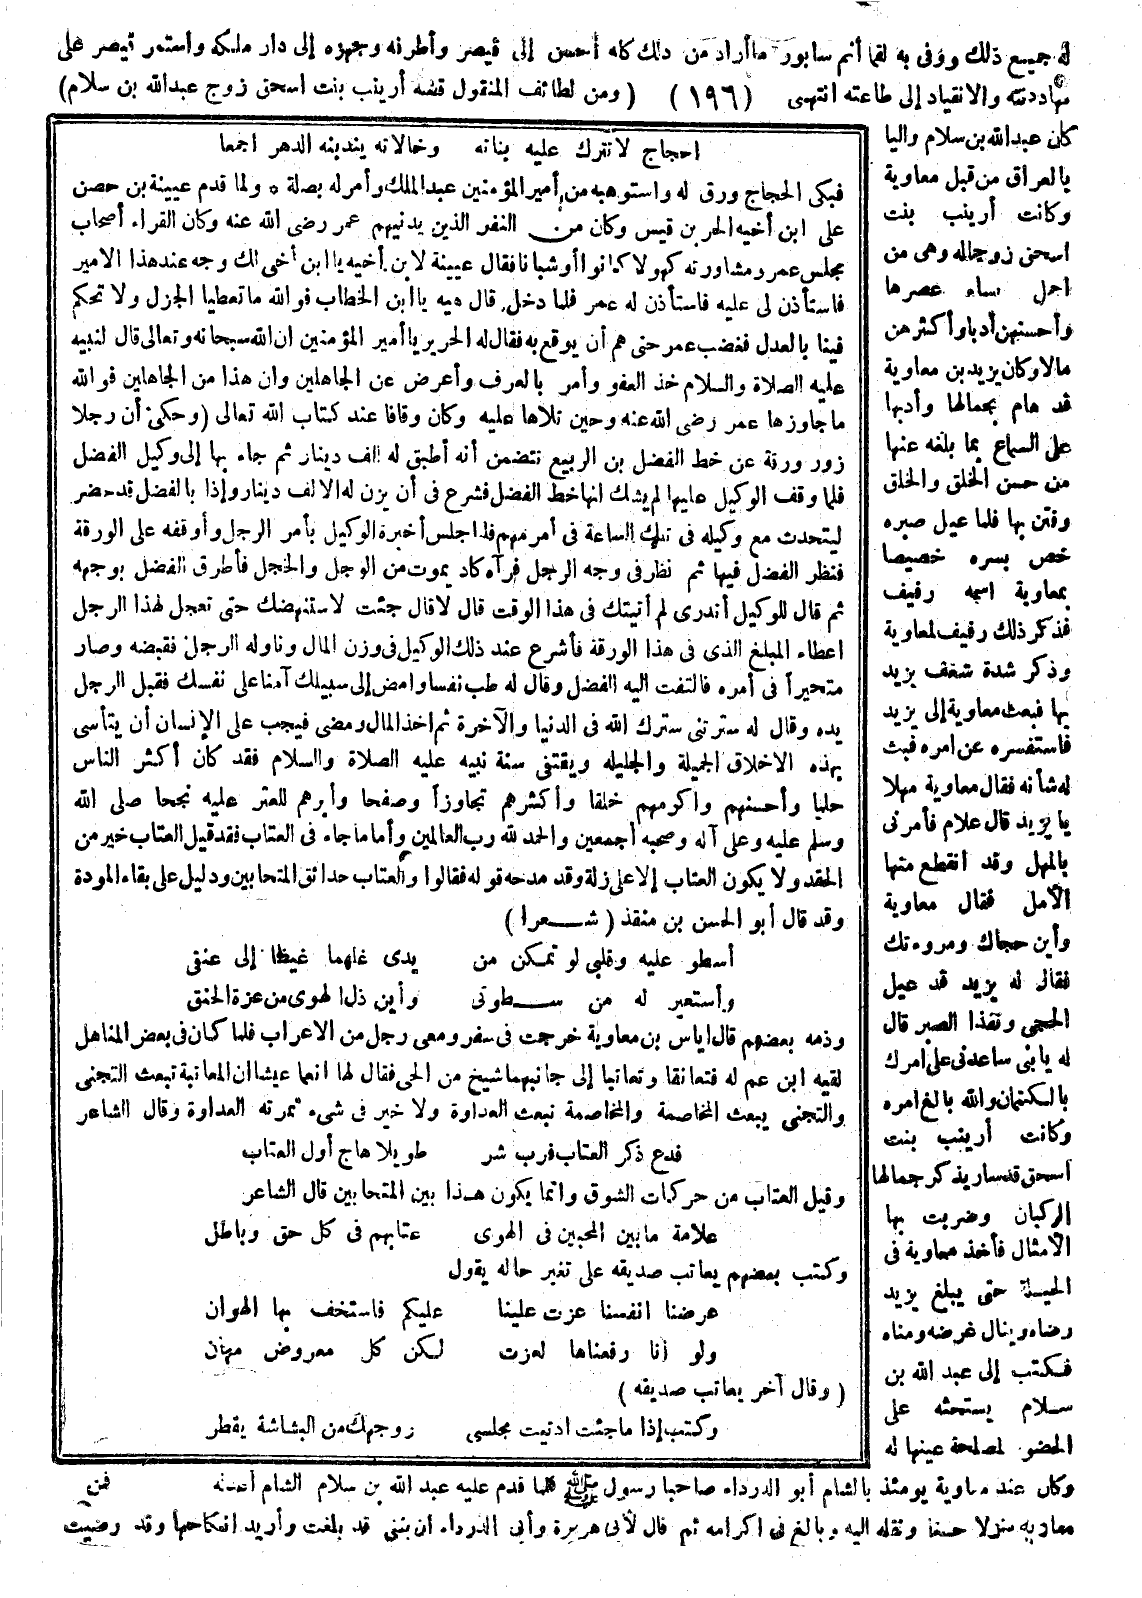 له جميع ذلك ووفى به لقا أتم سابور ما أراد من ذلك كله أحسن إلى قيصر وأطرفه وجهزه إلى دار ملكه واستمر قيصر على
مهادنته والانقياد إلى طاعته انتهى (١٩٦) (ومن لطائف المنقول قصة أرينب بنت اسحق زوج عبدالله بن سلام)
كان عبدالله بن سلام واليا
بالعراق من قبل معاوية
وكانت أرينب بنت
اسحق زوجا له وهى من
اجمل نساء عصرها
وأحسنهن أدبا وأكثرهن
مالا وكان يزيد بن معاوية
قد هام بجمالها وأدبها
على السماع بما بلغه عنها
من حسن الخلق والخلق
وفتن بها فلما عيل صبره
خص بسره خصيصا
بمعاوية اسمه رفيف
فذكر ذلك رفيف لمعاوية
وذكر شدة شغف يزيد
بها فبعث معاوية إلى يزيد
فاستفسره عن امره فبث
له شأنه فقال معاوية مهلا
يا يزيد قال علام فأمرنى
بالمهل وقد انقطع منها
الأمل فقال معاوية
وأين حجاك ومروءتك
فقال له يزيد قد عيل
الحجى ونفذ الصبر قال
له يا بنى ساعدنى على امرك
بالكتمان والله بالغ امره
وكانت أرينب بنت
اسحق قد سار يذكر جمالها
الركبان وضربت بها
الأمثال فأخذ معاوية فى
الحيلة حتى يبلغ يزيد
رضاه وينال غرضه ومناه
فكتب إلى عبد الله بن
سلام يستحثه على
الحضو لمصلحة عينها له
احجاج لا تترك عليه بناته وخالاته يندبنه الدهر اجمعا
فبكى الحجاج ورق له واستوهبه من أمير المؤمنين عبد الملك وأمر له بصلة * ولما قدم عيينة بن حصن
على ابن أخيه الحر بن قيس وكان من النفر الذين يدنيهم عمر رضى الله عنه وكان القراء أصحاب
مجلس عمر ومشاورته كهولا كانوا أو شبانا فقال عيينة لابن أخيه يا ابن أخى لك وجه عند هذا الامير
فاستأذن لى عليه فاستأذن له عمر فلما دخل قال هيه يا ابن الخطاب فو الله ما تعطينا الجزل ولا تحكم
فينا بالعدل فغضب عمر حتى هم أن يوقع به فقال له الحر يا أمير المؤمنين ان الله سبحانه وتعالى قال لنبيه
عليه الصلاة والسلام خذ العفو وأمر بالعرف وأعرض عن الجاهلين وان هذا من الجاهلين فو الله
ما جاوزها عمر رضى الله عنه وحين تلاها عليه وكان وقافا عند كتاب الله تعالى (وحكى) أن رجلا
زور ورقة عن خط الفضل بن الربيع تتضمن أنه أطلق له الف دينار ثم جاء بها إلى وكيل الفضل
فلما وقف الوكيل عليها لم يشك انها خط الفضل فشرع فى أن يزن له الالف دينار وإذا بالفضل قد حضر
ليتحدث مع وكيله فى تلك الساعة فى أمر مهم فلما جلس أخبره الوكيل بأمر الرجل وأوقفه على الورقة
فنظر الفضل فيها ثم نظر فى وجه الرجل فرآه كاد يموت من الوجل والخجل فأطرق الفضل بوجهه
ثم قال للوكيل أتدرى لم أتيتك فى هذا الوقت قال لا قال جئت لاستنهضك حتى تعجل لهذا الرجل
اعطاء المبلغ الذى فى هذا الورقة فأشرع عند ذلك الوكيل فى وزن المال وناوله الرجل فقبضه وصار
متحيرا فى أمره فالتفت اليه الفضل وقال له طب نفسا وامض إلى سبيلك آمنا على نفسك فقبل الرجل
يده وقال له سترتنى سترك الله فى الدنيا والآخرة ثم اخذ المال ومضى فيجب على الإنسان أن يتأسى
بهذه الاخلاق الجميلة والجليله ويقتفى سنة نبيه عليه الصلاة والسلام فقد كان أكثر الناس
حلما وأحسنهم واكرمهم خلقا وأكثرهم تجاوزاً وصفحا وأبرهم للمعتر عليه نجحا صلى الله
وسلم عليه وعلى آله وصحبه أجمعين والحمد لله رب العالمين وأما ما جاء فى العتاب فقد قيل العتاب خير من
الحقد ولا يكون العتاب إلا على زلة وقد مدحه قوله فقالوا والعتاب حدائق المتحابين ودليل على بقاء المودة
وقد قال أبو الحسن بن منقذ (شعرا)
أسطو عليه وقلبى لو تمكن من يدى غلهما غيظا إلى عنقى
وأستعير له من سطوتى وأين ذل الهوى من عزة الحنق
وذمه بعضهم قال اياس بن معاوية خرجت فى سفر ومعى رجل من الاعراب فلما كان فى بعض المناهل
لقيه ابن عم له فتعانقا وتعاتبا إلى جانبهما شيخ من الحى فقال لها انعما عيشا ان المعاتبة تبعث التجنى
والتجنى يبعث المخاصمة والمخاصمة تبعث العداوة ولا خير فى شىء ثمرته العداوة وقال الشاعر
فدع ذكر العتاب فرب شر طويلا هاج أول العتاب
وقيل العتاب من حركات الشوق وانما يكون هذا بين المتحابين قال الشاعر
علامة ما بين المحبين فى الهوى عتابهم فى كل حق وباطل
وكتب بعضهم يعاتب صديقه على تغير حاله يقول
عرضنا انفسنا عزت علينا عليكم فاستخف بها الهوان
ولو أنا رفعناها لعزت لكن كل معروض مهان
(وقال آخر يعاتب صديقه)
وكنت إذا ما جئت ادنيت مجلسى ووجهك من البشاشة يقطر
وكان عند معاوية يومئذ بالشام أبو الدرداء صاحبا رسول ﷺ فلما قدم عليه عبد الله بن سلام الشام أعدله
فمن
معاوية منزلا حسنا ونقله اليه وبالغ فى اكرامه ثم قال لأبى هريرة وأبى الدرداء ان بنتى قد بلغت وأريد انكاحها وقد رضيت